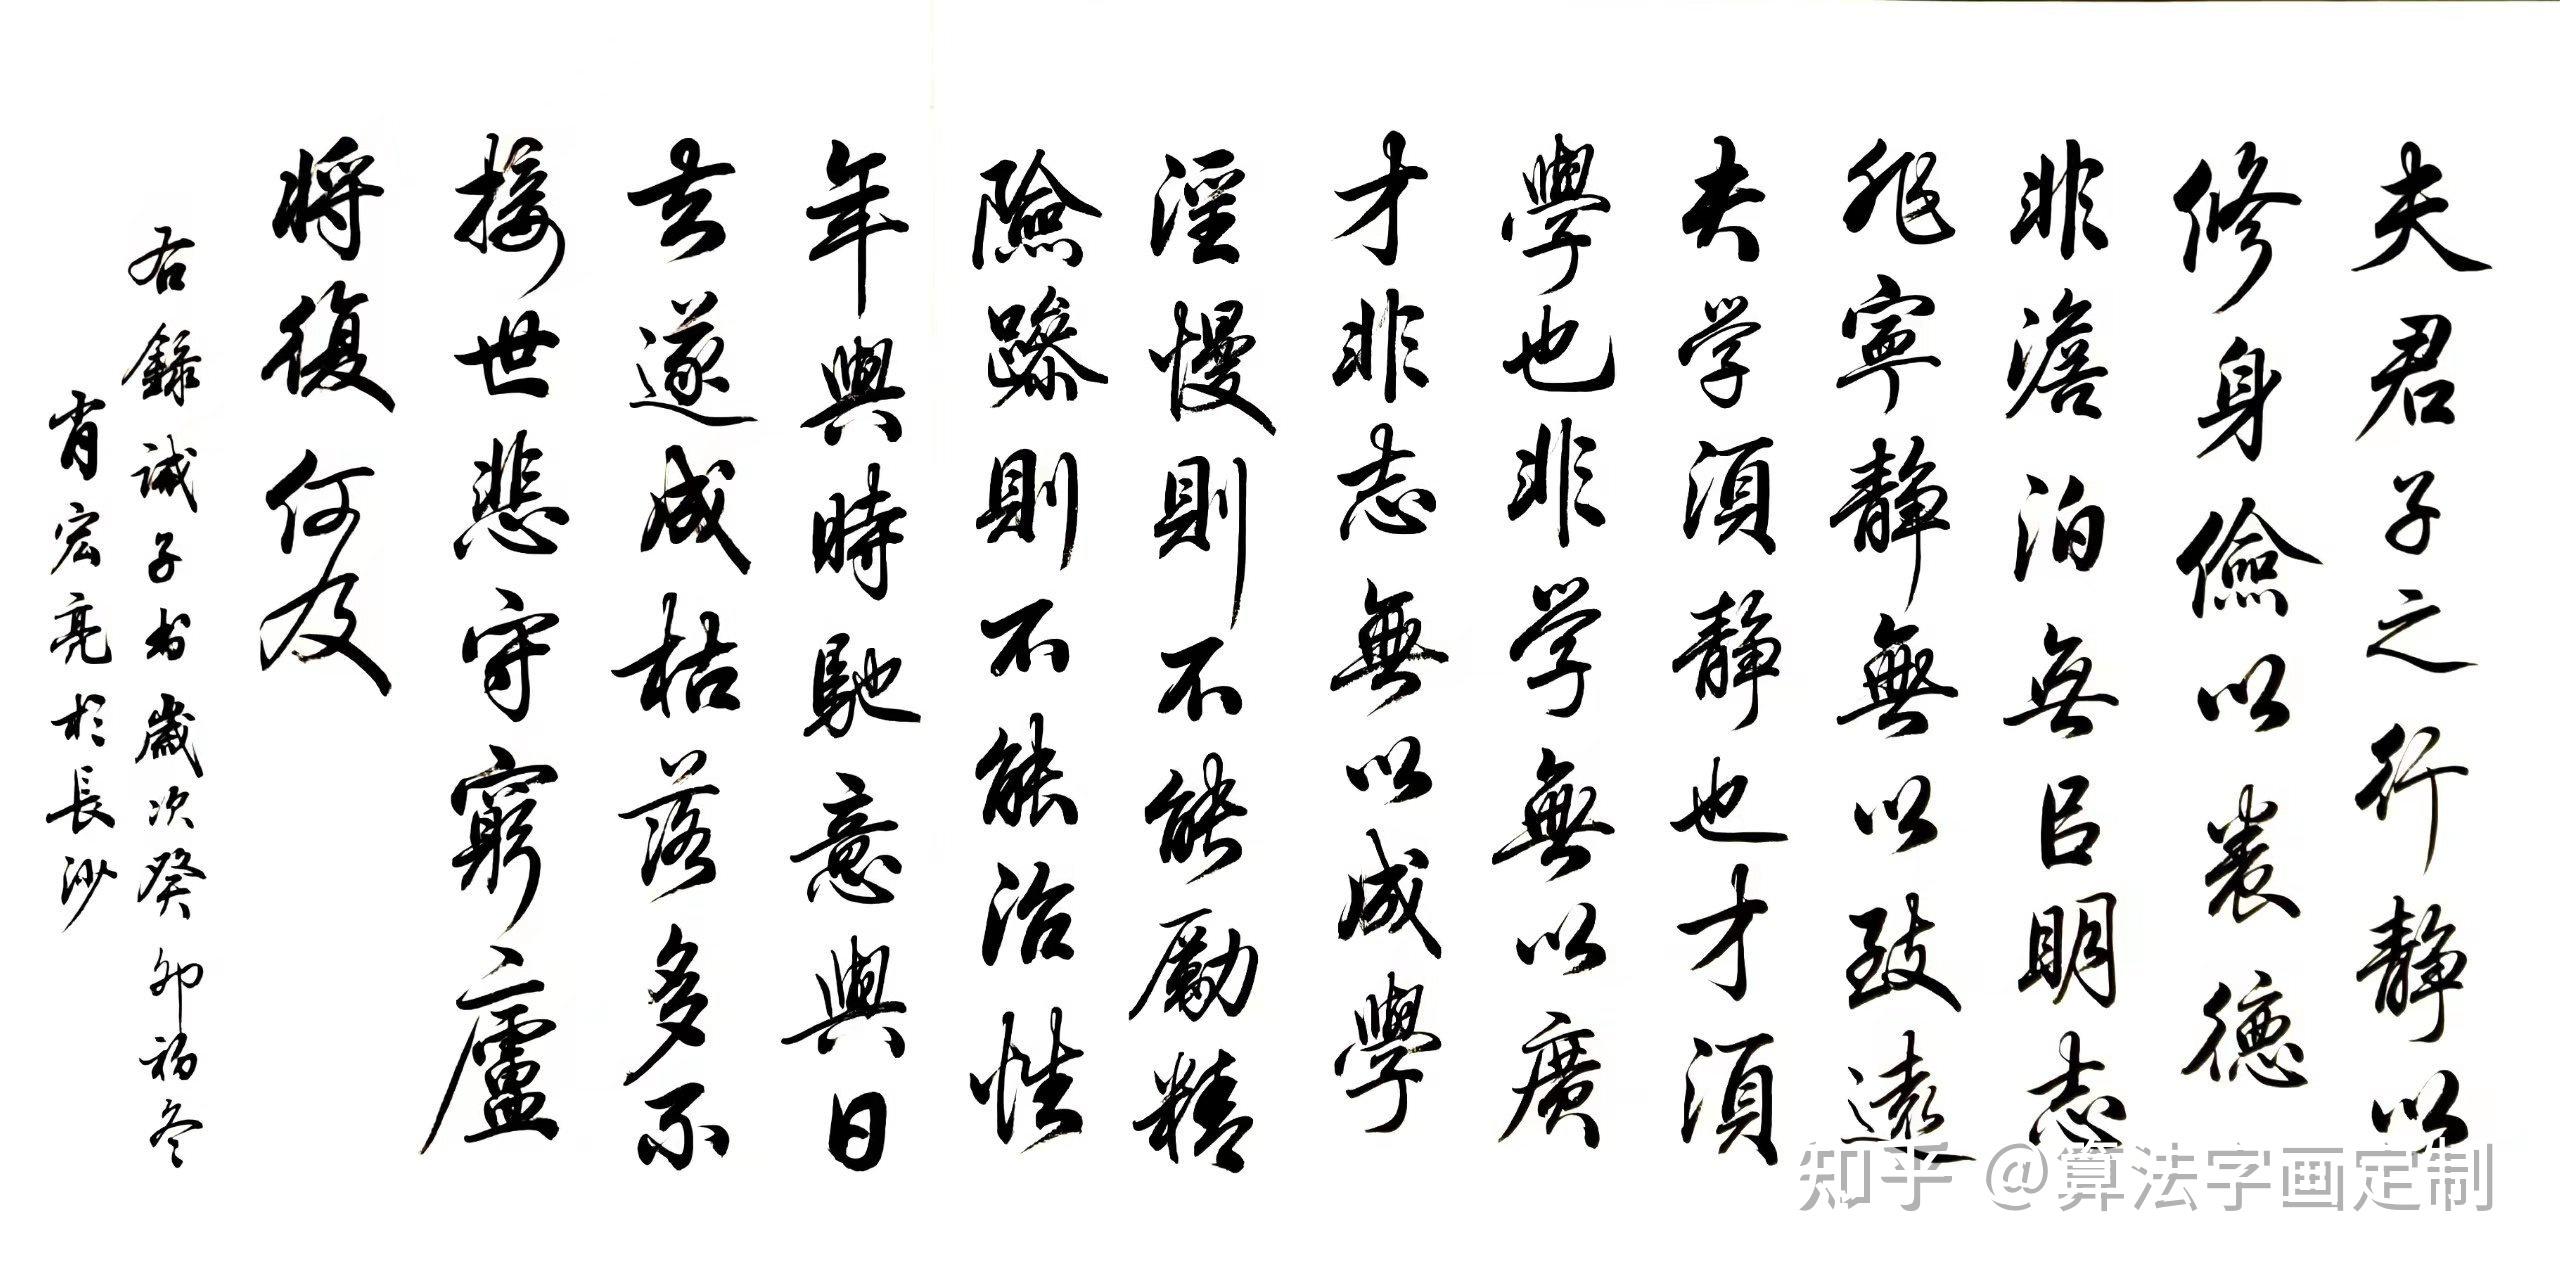 夫君子之行静以
修身儉以养德
非澹泊無㠯明志
非寧静無以致遠
夫学須静也才須
學也非学無以廣
才非志無以成學
淫慢則不能勵精
險躁則不能治性
年與時馳意與日
去遂成枯落多不
接世悲守窮廬
將復何及
右錄誡子书歲次癸卯初冬
肖宏亮於長沙
知乎 @算法字画定制